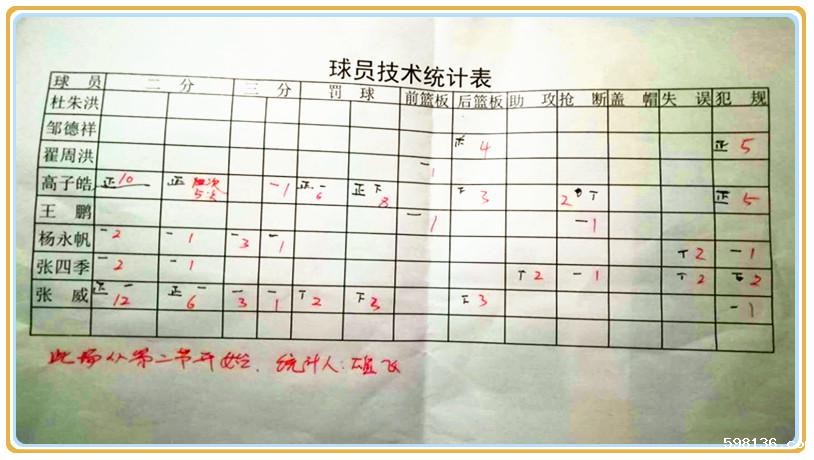 球员技术统计表
球 员 二 分 三 分 罚 球 前篮板 后篮板 助 攻 抢 断 盖 帽 失 误 犯 规
杜朱洪
邹德祥 4 正 5
翟周洪 一 1
高子皓 正 10 正 一 1 正一 6 正下 8 下 3 2 正 5
王 鹏 一 1 一 1
杨永帆 一 2 一 1 一 3 一 1 T 2 一 1
张四季 一 2 一 1 T 2 一 1 T 2 2
张 威 正一 12 正一 6 一 3 一 1 T 2 下 3 下 3 一 1
此场从第二节开始. 统计人:
598136.co